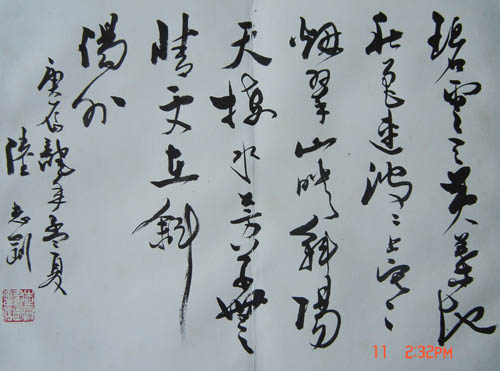 碧雲天黃葉地
秋色連波〻上寒
烟翠山映斜陽
天接水芳草無
情更在斜
陽外
庚辰龍年孟夏
陸志剛
11 2:32PM